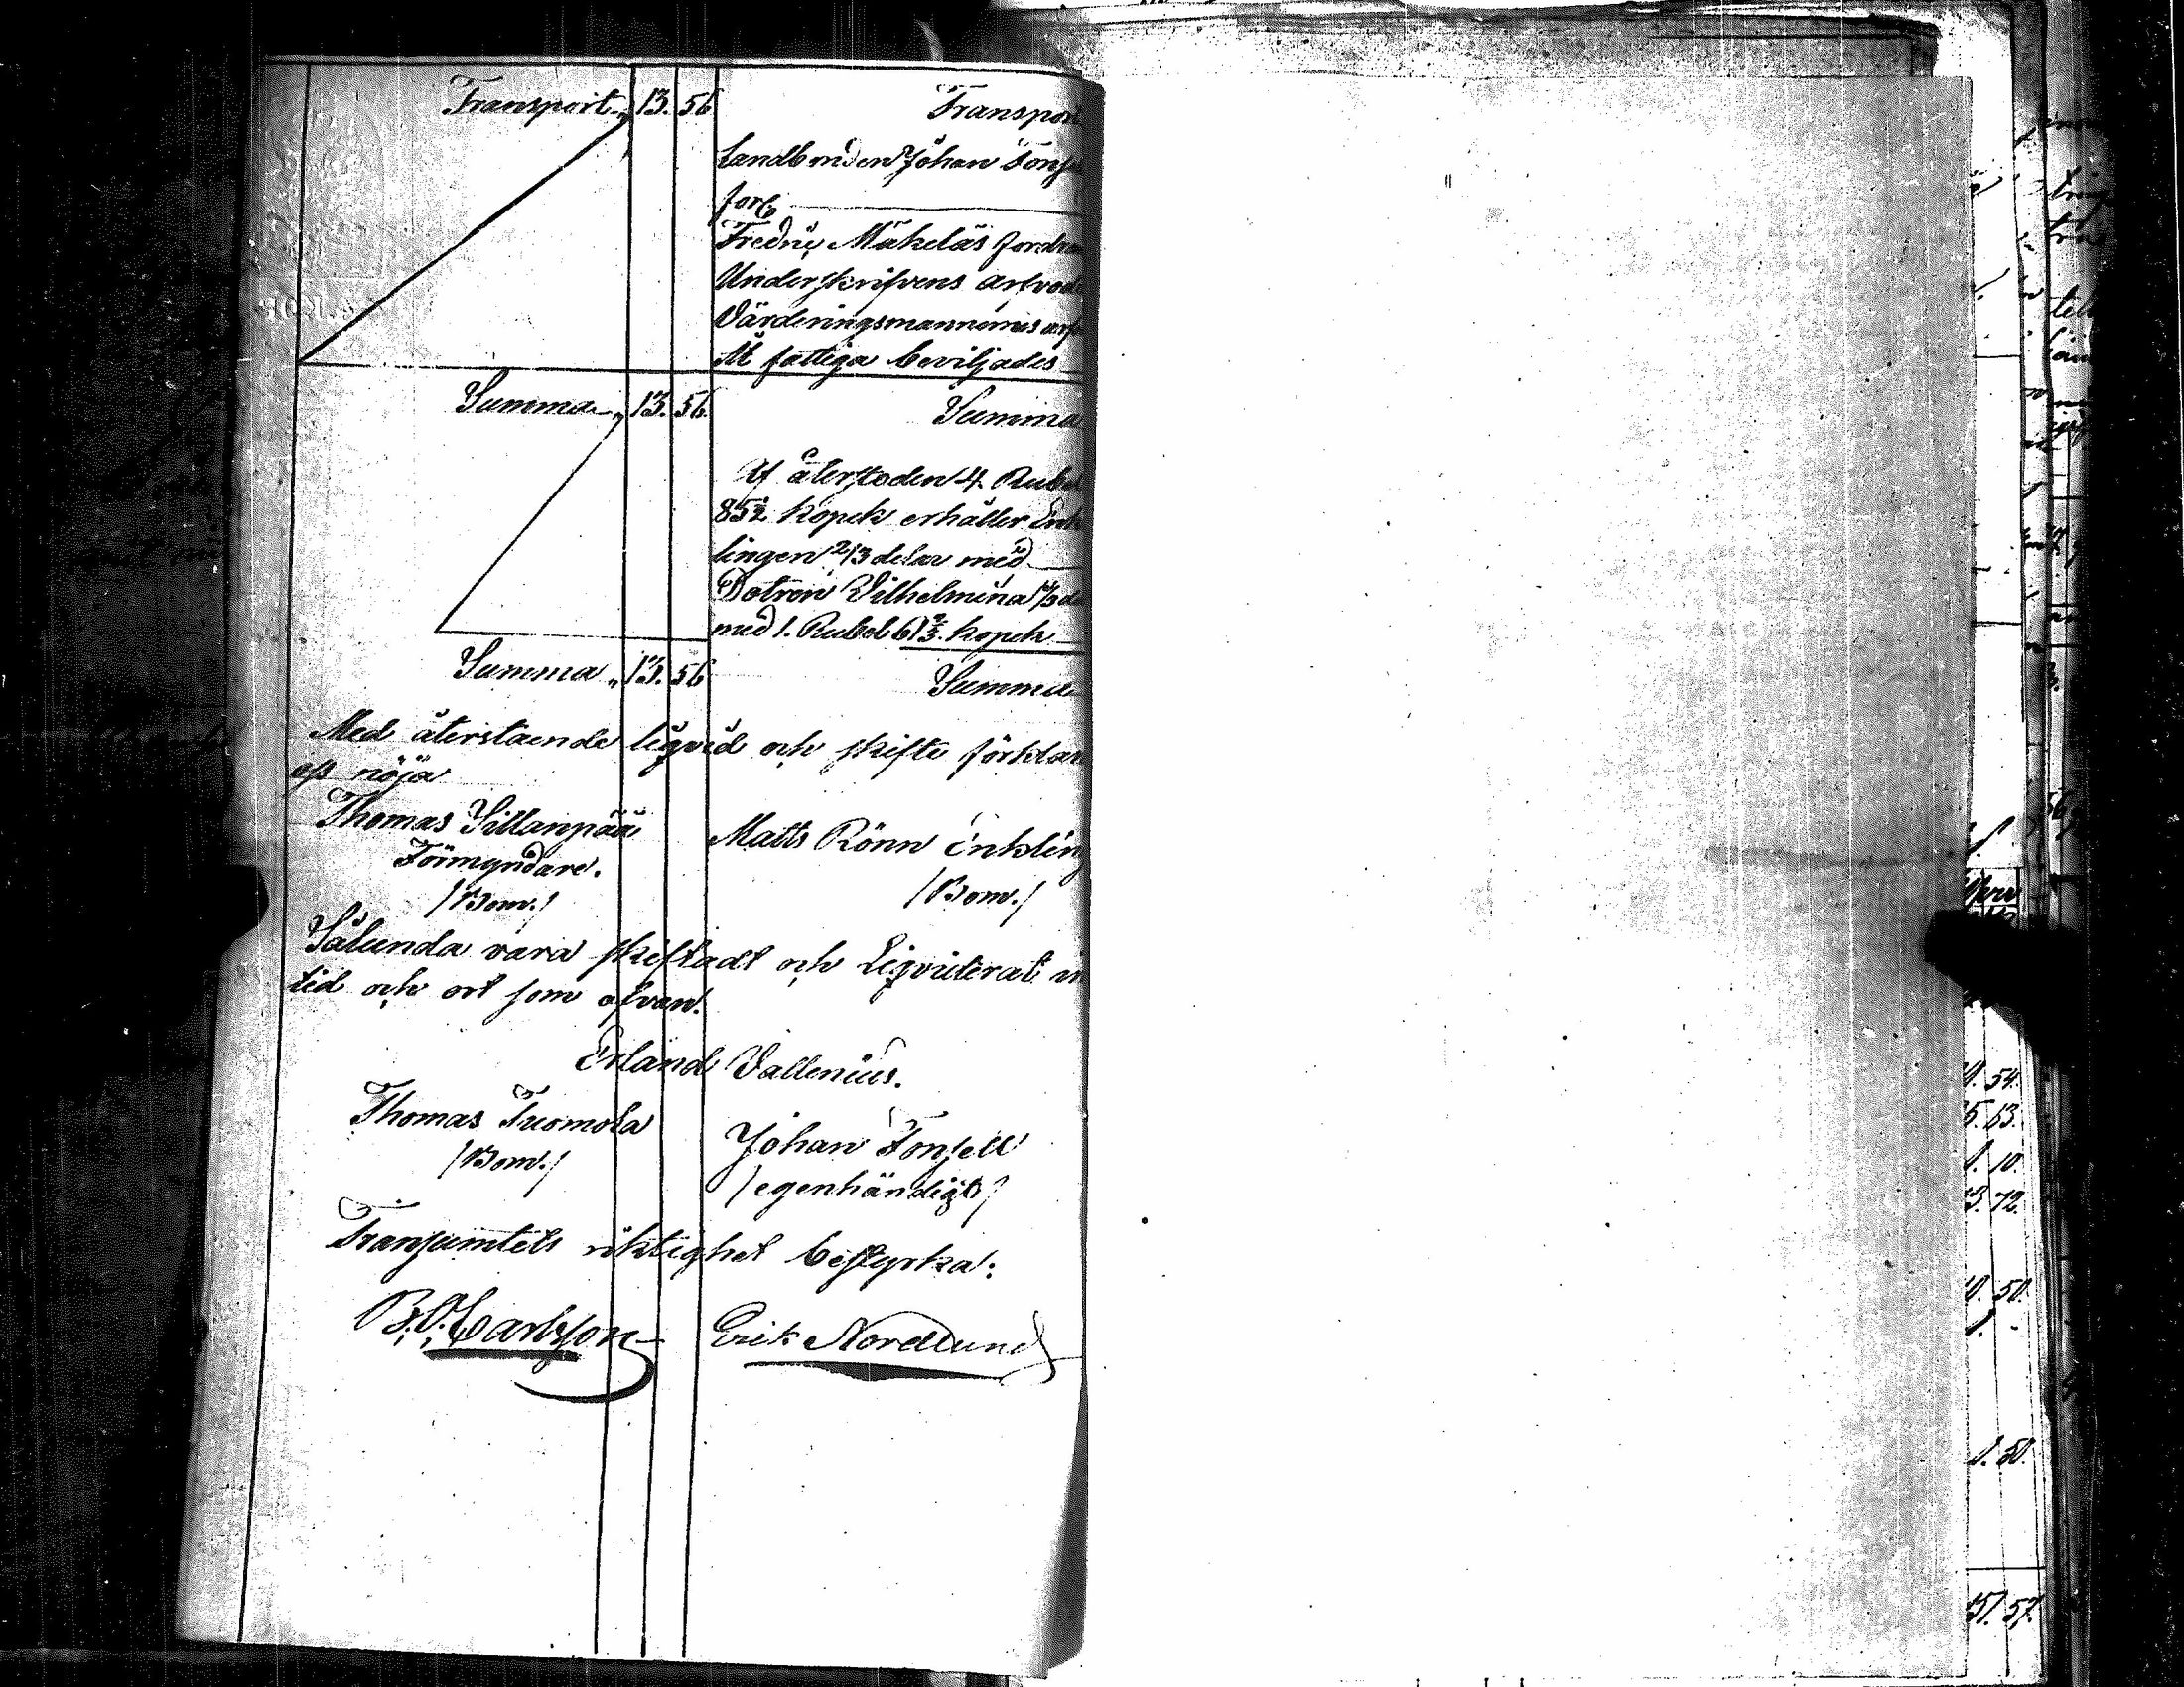 Transport „ 13. 56 Transpor
Landbonden Johan Tonf
ford
Fredric Mäkeläs fordra
Underskrifvens arfvod
Värderingsmannernes arf
At fattiga beviljades
Summa „ 13. 56. Summa
Af återstoden 4 Rubel
85½ kopek erhåller Enk
lingen 2/3 delar med
Dotren Vilhelmina 1/3 d
med 1. Rubel 61⅔ kopek
Summa „ 13. 56 Summa
Med återstående liqvid och skifte förklar
oss nöja
Thomas Sillanpää Matts Rönn Enkling
Förmyndare.
/Bom./ /Bom./
Sålunda vara skiftadt och Liqviterat
tid och ort som ofvan.
Erland Vallenius.
Thomas Tuomola Johan Tonfell
/Bom./ /egenhändigt/
Transumtets riktighet bestyrka:
B. O. Carlsson Erik Nordlund
54.
5. 63.
10.
3. 72.
0. 50.
50.
51. 57.